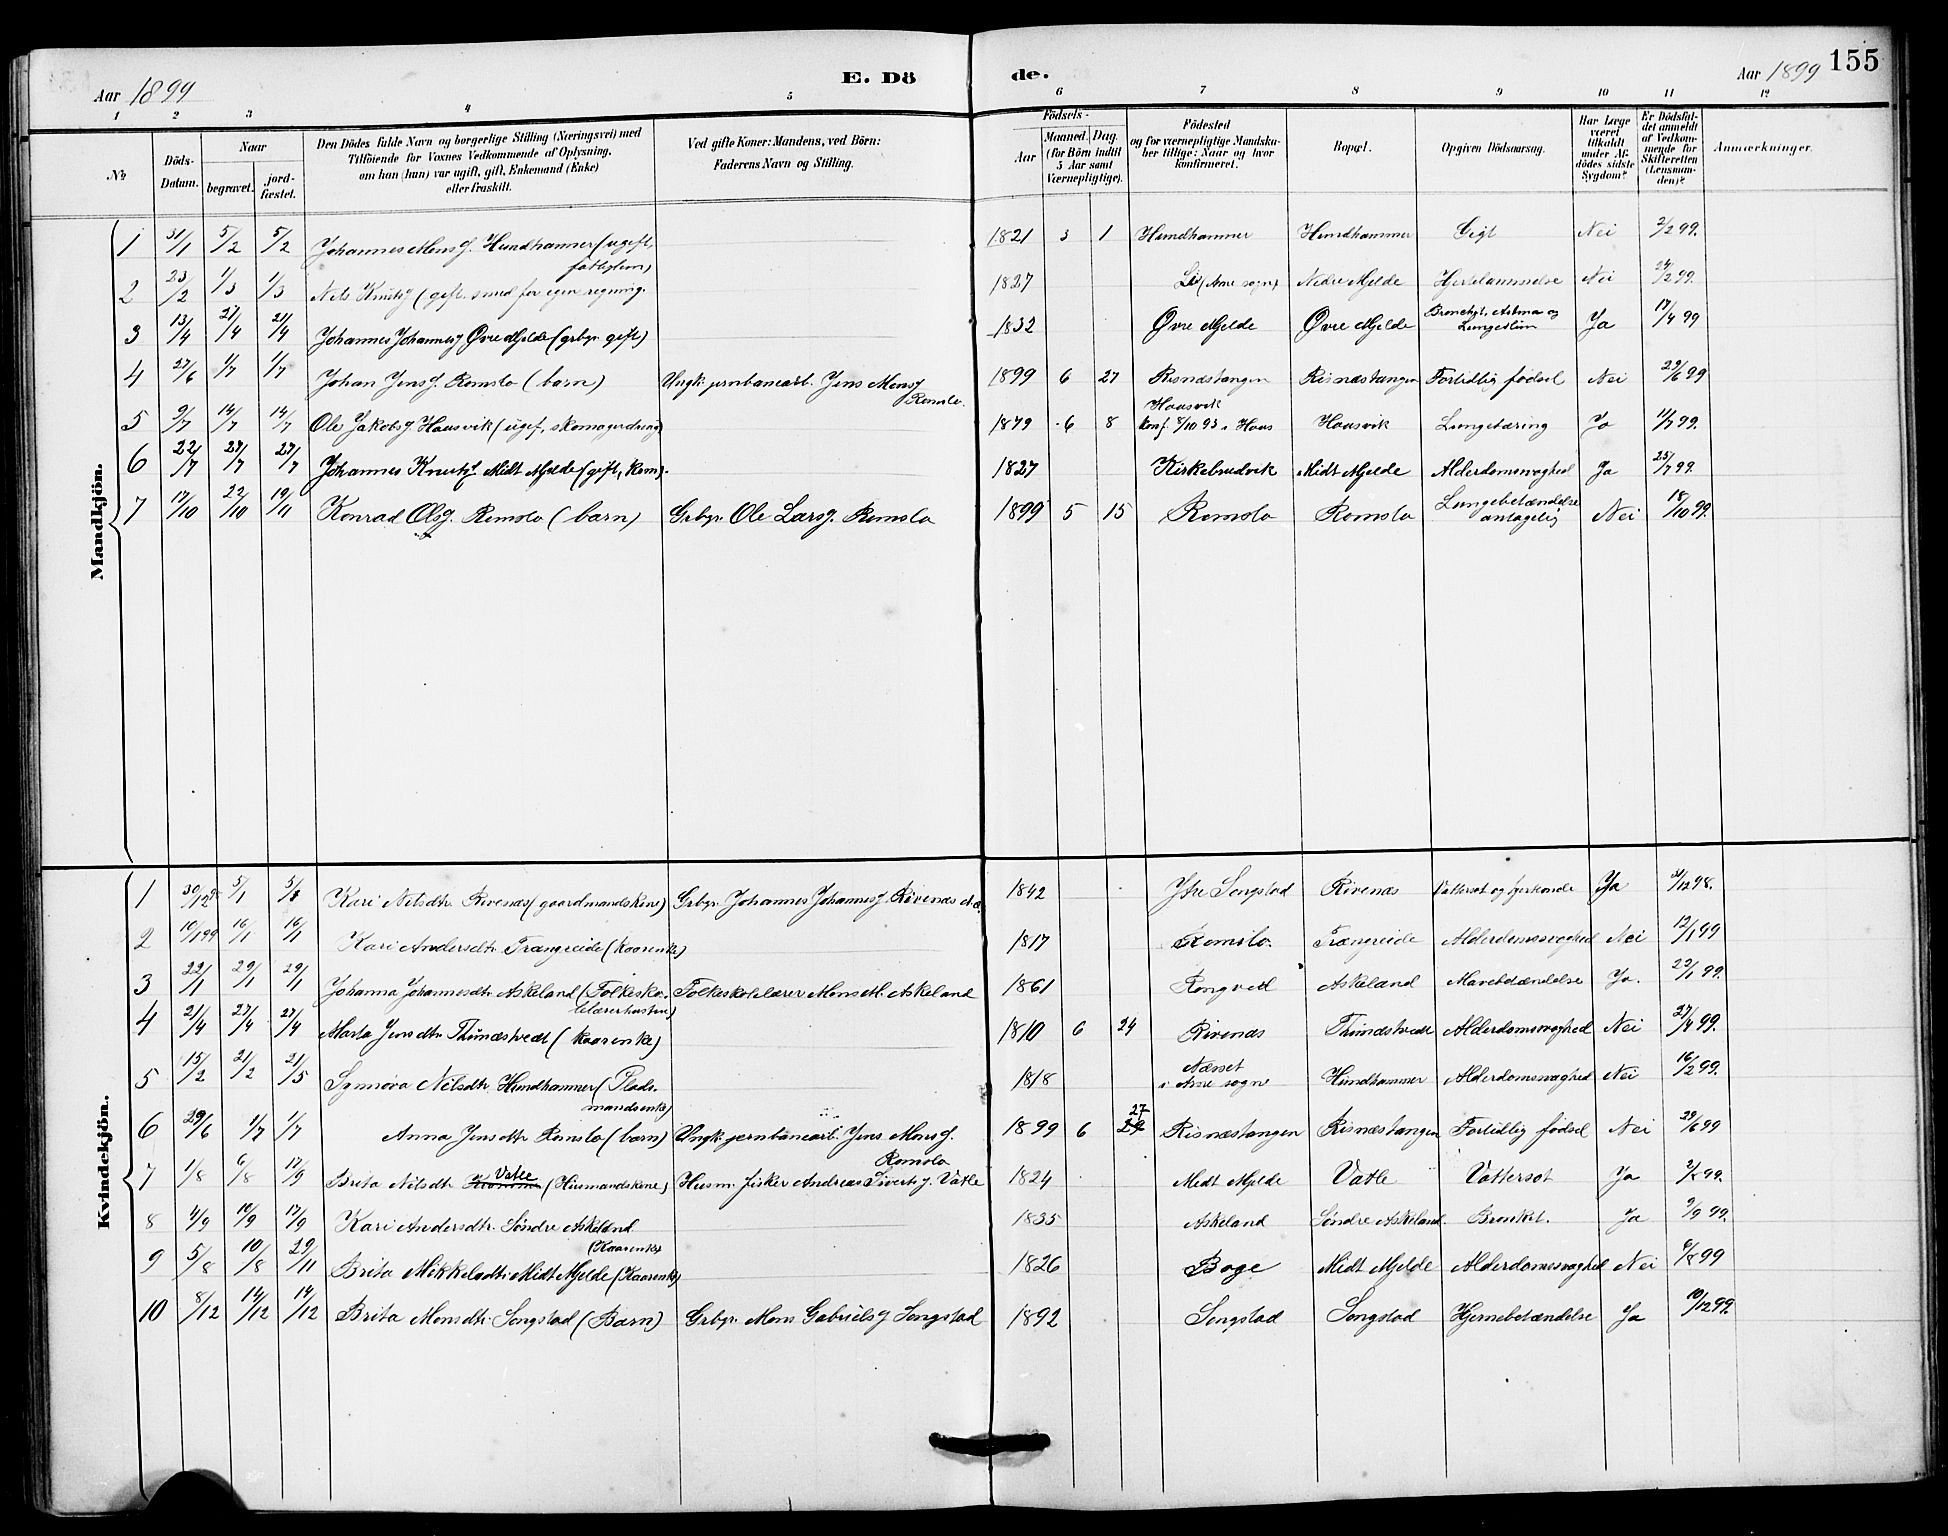 155
E. Dö de.
Aar 1899
Aar 1899
1 2 3 4 5 6 7 8 9 10 11 12
No
Döds-Datum.
Naar
begravet.
jord-fæstet.
Den Dödes fulde Navn og borgerlige Stilling (Næringsvei) med
Tilföiende for Voxnes Vedkommende af Oplysning,
om han (hun) var ugift, gift, Enkemand (Enke)
eller fraskilt.
Ved gifte Koner: Mandens, ved Börn:
Faderens Navn og Stilling.
Födsels-
Aar
Maaned. Dag.
(for Börn indtil
5 Aar samt
Værnepligtige).
Födested
og for værnepligtige Mandska-
ber tillige: Naar og hvor
konfirmeret.
Bopæl.
Opgiven Dödsaarsag.
Har Læge
været
tilkaldt
under Af-
dödes sidste
Sygdom?
Er Dödsfal-
det anmeldt
af Vedkom-
mende for
Skifteretten
(Lensman-
den)?
Anmærkninger.
Mandkjön.
1 31/1 5/2 5/2 Johannes Monsg. Hundhammer (ugift, 1821 3 1 Hundhammer Hundhammer Gigt Nei 2/2 99.
fattiglem)
2 23/2 1/3 1/3 Nils Knutsg (gift. smed for egen regning. 1827 (Arne sogn) Nedre Mjelde Hjertelammelse Nei 24/2 99.
3 13/4 21/4 21/4 Johannes Johannesg Øvre Mjelde (grbgr. gift) 1832 Øvre Mjelde Øvre Mjelde Bronchyt, Astma og Lungeslim Ja 17/4 99
4 27/6 1/7 1/7 Johan Jensg. Romslo (barn) Ungk. jernbanearb. Jens Monsg Romslo. 1899 6 27 Risnæstangen Risnæstangen Fortidlig födsel Nei 29/6 99
5 9/7 14/7 14/7 Ole Jakobsg Haasvik (ugift, skomagerdreng) 1879 6 8 Haasvik konf. 8/10 93 i Haus Haasvik Lungetæring Ja 11/7 99.
6 22/7 27/7 27/7 Johannes Knutsg. Midt Mjelde (gift, Kaarm). 1827 Kirkebrudvik Midt Mjelde Alderdomssvaghed Ja 25/7 99.
7 17/10 22/10 19/11 Konrad Olsg. Romslo (barn) Grbgr. Ole Larsg. Romslo 1899 5 15 Romslo Romslo Lungebetændelse antagelig Nei 18/10 99.
Kvindekjön.
1 30/12 98 5/1 5/1 Kari Nilsdtr. Rivenæs (gaardmandskone) Grbgr. Johannes Johannesg. Rivenæs 1842 Ytre Songstad Rivenæs Vattersot og Ja 31/12 98.
2 10/1 99 16/1 16/1 Kari Andersdtr. Trængreide (Kaarenke) 1817 Romslo. Trængreide Alderdomssvaghed Nei 12/1 99
3 22/1 29/1 29/1 Johanna Johannesdtr. Askeland (Folkesko- Folkeskolelærer Mons M. Askeland 1861 Rongved Askeland Mavebetændelse Ja. 23/1 99.
lelærerhustru)
4 21/4 27/4 27/4 Marta Jensdtr. Thunæstvedt (kaarenke) 1810 6 24 Rivenæs Thunæstvedt Alderdomssvaghed Nei 27/4 99.
5 15/2 21/2 21/5 Synnöva Nilsdtr. Hundhammer (Plads- 1818 Næsset i Arne sogn Hundhammer Alderdomssvaghed Nei 16/2 99.
mandsenke)
6 29/6 1/7 1/7 Anna Jensdtr. Romslo (barn) Ungk. jernbanearb. Jens Monsg. Romslo 1899 6 27 Risnæstangen Risnæstangen Fortidlig födsel Nei 29/6 99
7 1/8 6/8 17/9 Brita Nilsdtr. Vatle (Husmandskone) Husm. fisker Andreas Sivertsg. Vatle 1824 Midt Mjelde Vatle Vattersot Ja 2/8 99.
8 4/9 10/9 17/9 Kari Andersdtr. Söndre Askeland (Kaarenke) 1835 Askeland Söndre Askeland. Bronkit. Ja 9/9 99.
9 5/8 10/8 29/11 Brita Mikkelsdtr. Midt Mjelde (Kaarenke) 1826 Boge Midt Mjelde Alderdomssvaghed Nei 6/8 99
10 8/12 14/12 14/12 Brita Monsdtr. Songstad (Barn) Grbgr. Mons Gabrielsg Songstad 1892 Songstad Songstad Hjernebetændelse Ja 10/12 99.